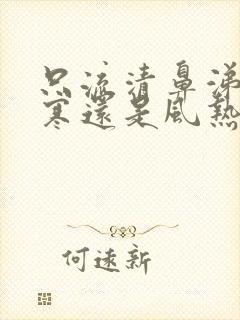 只流清鼻涕
寒還是風熱
何遠新